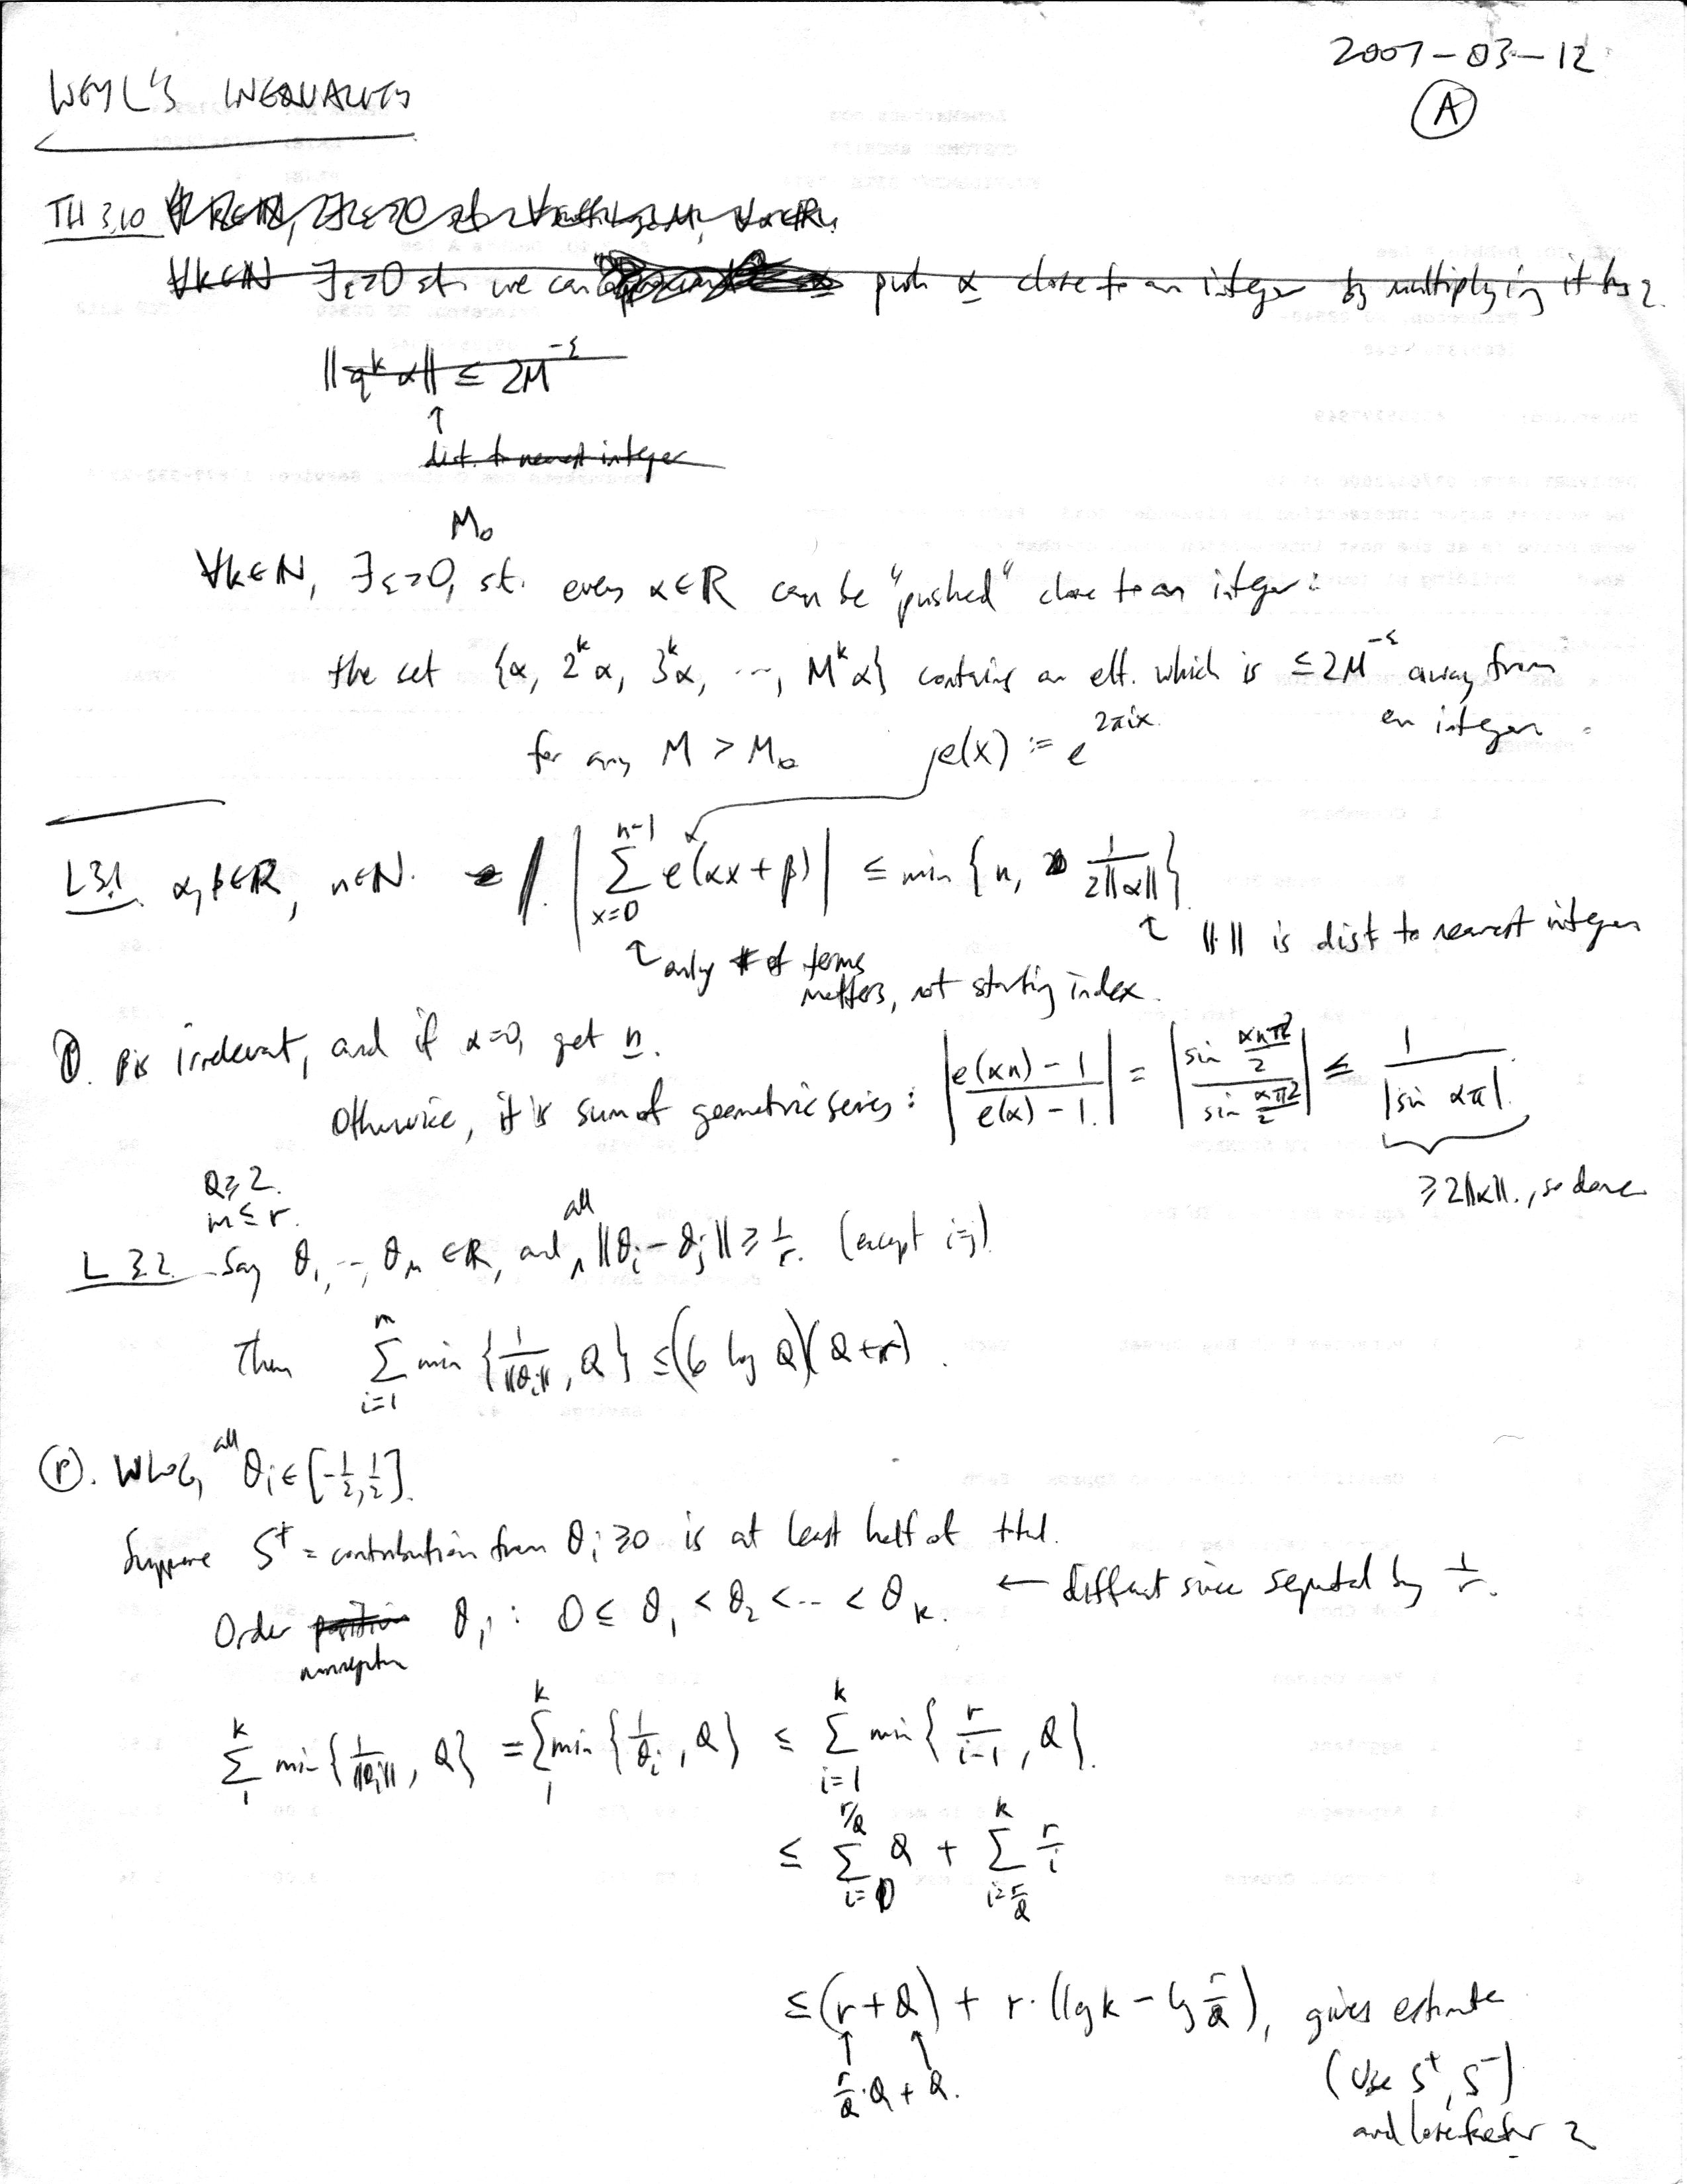 2007-03-12
A
WEYL'S INEQUALITY
TH 3.10
∀k∈N ∃ε>0 st. we can push α close to an integer by multiplying it by 2.
||q^k α|| ≤ 2M^{-ε}
↑
dist. to nearest integer
M₀
∀k∈N, ∃ε>0, st. every α∈R can be "pushed" close to an integer:
the set {α, 2^k α, 3^k α, ..., M^k α} contains an elt. which is ≤ 2M^{-ε} away from
an integer
for any M > M₀ e(x) := e^{2πix}.
L 3.1. α, β∈R, n∈N. |∑_{x=0}^{n-1} e(αx+β)| ≤ min {n, 1/(2||α||)}
↑ only # of terms
matters, not starting index.
↑ ||·|| is dist to nearest integer
P. β is irrelevant, and if α=0, get n.
Otherwise, it is sum of geometric series: |(e(αn) - 1)/(e(α) - 1)| = |(sin (αnπ2/2))/(sin (απ2/2))| ≤ 1/|sin απ|.
≥ 2||α||., so done
Q≥2.
m≤r.
L 3.2 Say θ₁, ..., θ_m ∈R, and all ||θ_i - θ_j|| ≥ 1/r. (except i=j)
Then ∑_{i=1}^{m} min {1/||θ_i||, Q} ≤ (6 log Q)(Q+r).
P. WLOG, all θ_i ∈ [-1/2, 1/2].
Suppose S⁺ = contribution from θ_i ≥0 is at least half of total.
Order positive θ_i : 0 ≤ θ₁ < θ₂ < ... < θ_k. ← different since separated by 1/r.
nonnegative
∑_1^k min {1/||θ_i||, Q} = ∑_1^k min {1/θ_i, Q} ≤ ∑_{i=1}^k min {r/(i-1), Q}.
≤ ∑_{i=0}^{r/Q} Q + ∑_{i=r/Q}^k r/i
≤ (r+Q) + r·(log k - log r/Q), gives estimate
↑ ↑
r/Q·Q + Q.
(Use S⁺, S⁻)
and lose factor 2